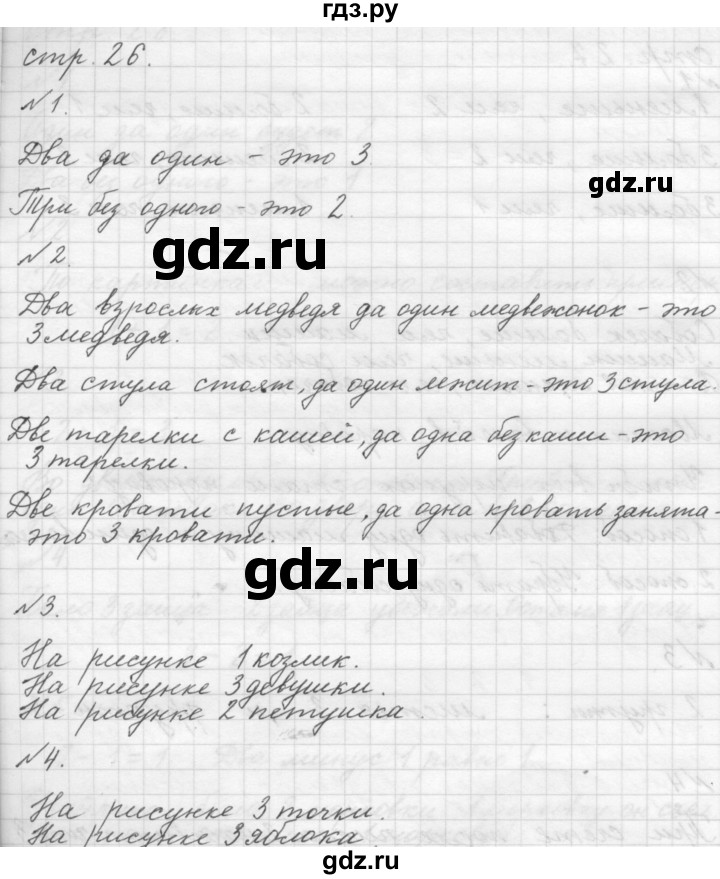 гдз.ру
стр. 26.
№1.
Два да один – это 3.
gdz.ru
Три без одного – это 2.
gdz.ru
№2.
Два взрослых медведя да один медвежонок – это
3 медведя.
Два стула стоят, да один лежит – это 3 стула.
Две тарелки с кашей, да одна без каши – это
3 тарелки.
Две кровати пустые, да одна кровать занята –
это 3 кровати.
gdz.ru
№3.
На рисунке 1 козлик.
На рисунке 3 девушки.
На рисунке 2 петушка.
gdz.ru
№4.
На рисунке 3 точки.
На рисунке 3 яблока
gdz.ru